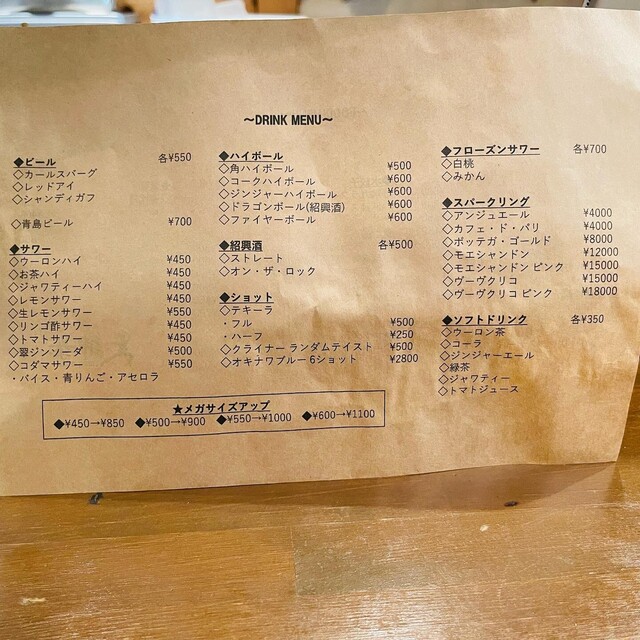 ～DRINK MENU～
◆ビール 各¥550
◇カールスバーグ
◇レッドアイ
◇シャンディガフ
◇青島ビール ¥700
◆サワー
◇ウーロンハイ ¥450
◇お茶ハイ ¥450
◇ジャワティーハイ ¥450
◇レモンサワー ¥450
◇生レモンサワー ¥550
◇リンゴ酢サワー ¥450
◇トマトサワー ¥450
◇翠ジンソーダ ¥500
◇コダマサワー ¥550
・バイス・青りんご・アセロラ
◆ハイボール
◇角ハイボール ¥500
◇コークハイボール ¥600
◇ジンジャーハイボール ¥600
◇ドラゴンボール(紹興酒) ¥600
◇ファイヤーボール ¥600
◆紹興酒 各¥500
◇ストレート
◇オン・ザ・ロック
◆ショット
◇テキーラ
・フル ¥500
・ハーフ ¥250
◇クライナー ランダムテイスト ¥500
◇オキナワブルー 6ショット ¥2800
◆フローズンサワー 各¥700
◇白桃
◇みかん
◆スパークリング
◇アンジュエール ¥4000
◇カフェ・ド・パリ ¥4000
◇ボッテガ・ゴールド ¥8000
◇モエシャンドン ¥12000
◇モエシャンドン ピンク ¥15000
◇ヴーヴクリコ ¥15000
◇ヴーヴクリコ ピンク ¥18000
◆ソフトドリンク 各¥350
◇ウーロン茶
◇コーラ
◇ジンジャーエール
◇緑茶
◇ジャワティー
◇トマトジュース
★メガサイズアップ
◆¥450→¥850 ◆¥500→¥900 ◆¥550→¥1000 ◆¥600→¥1100